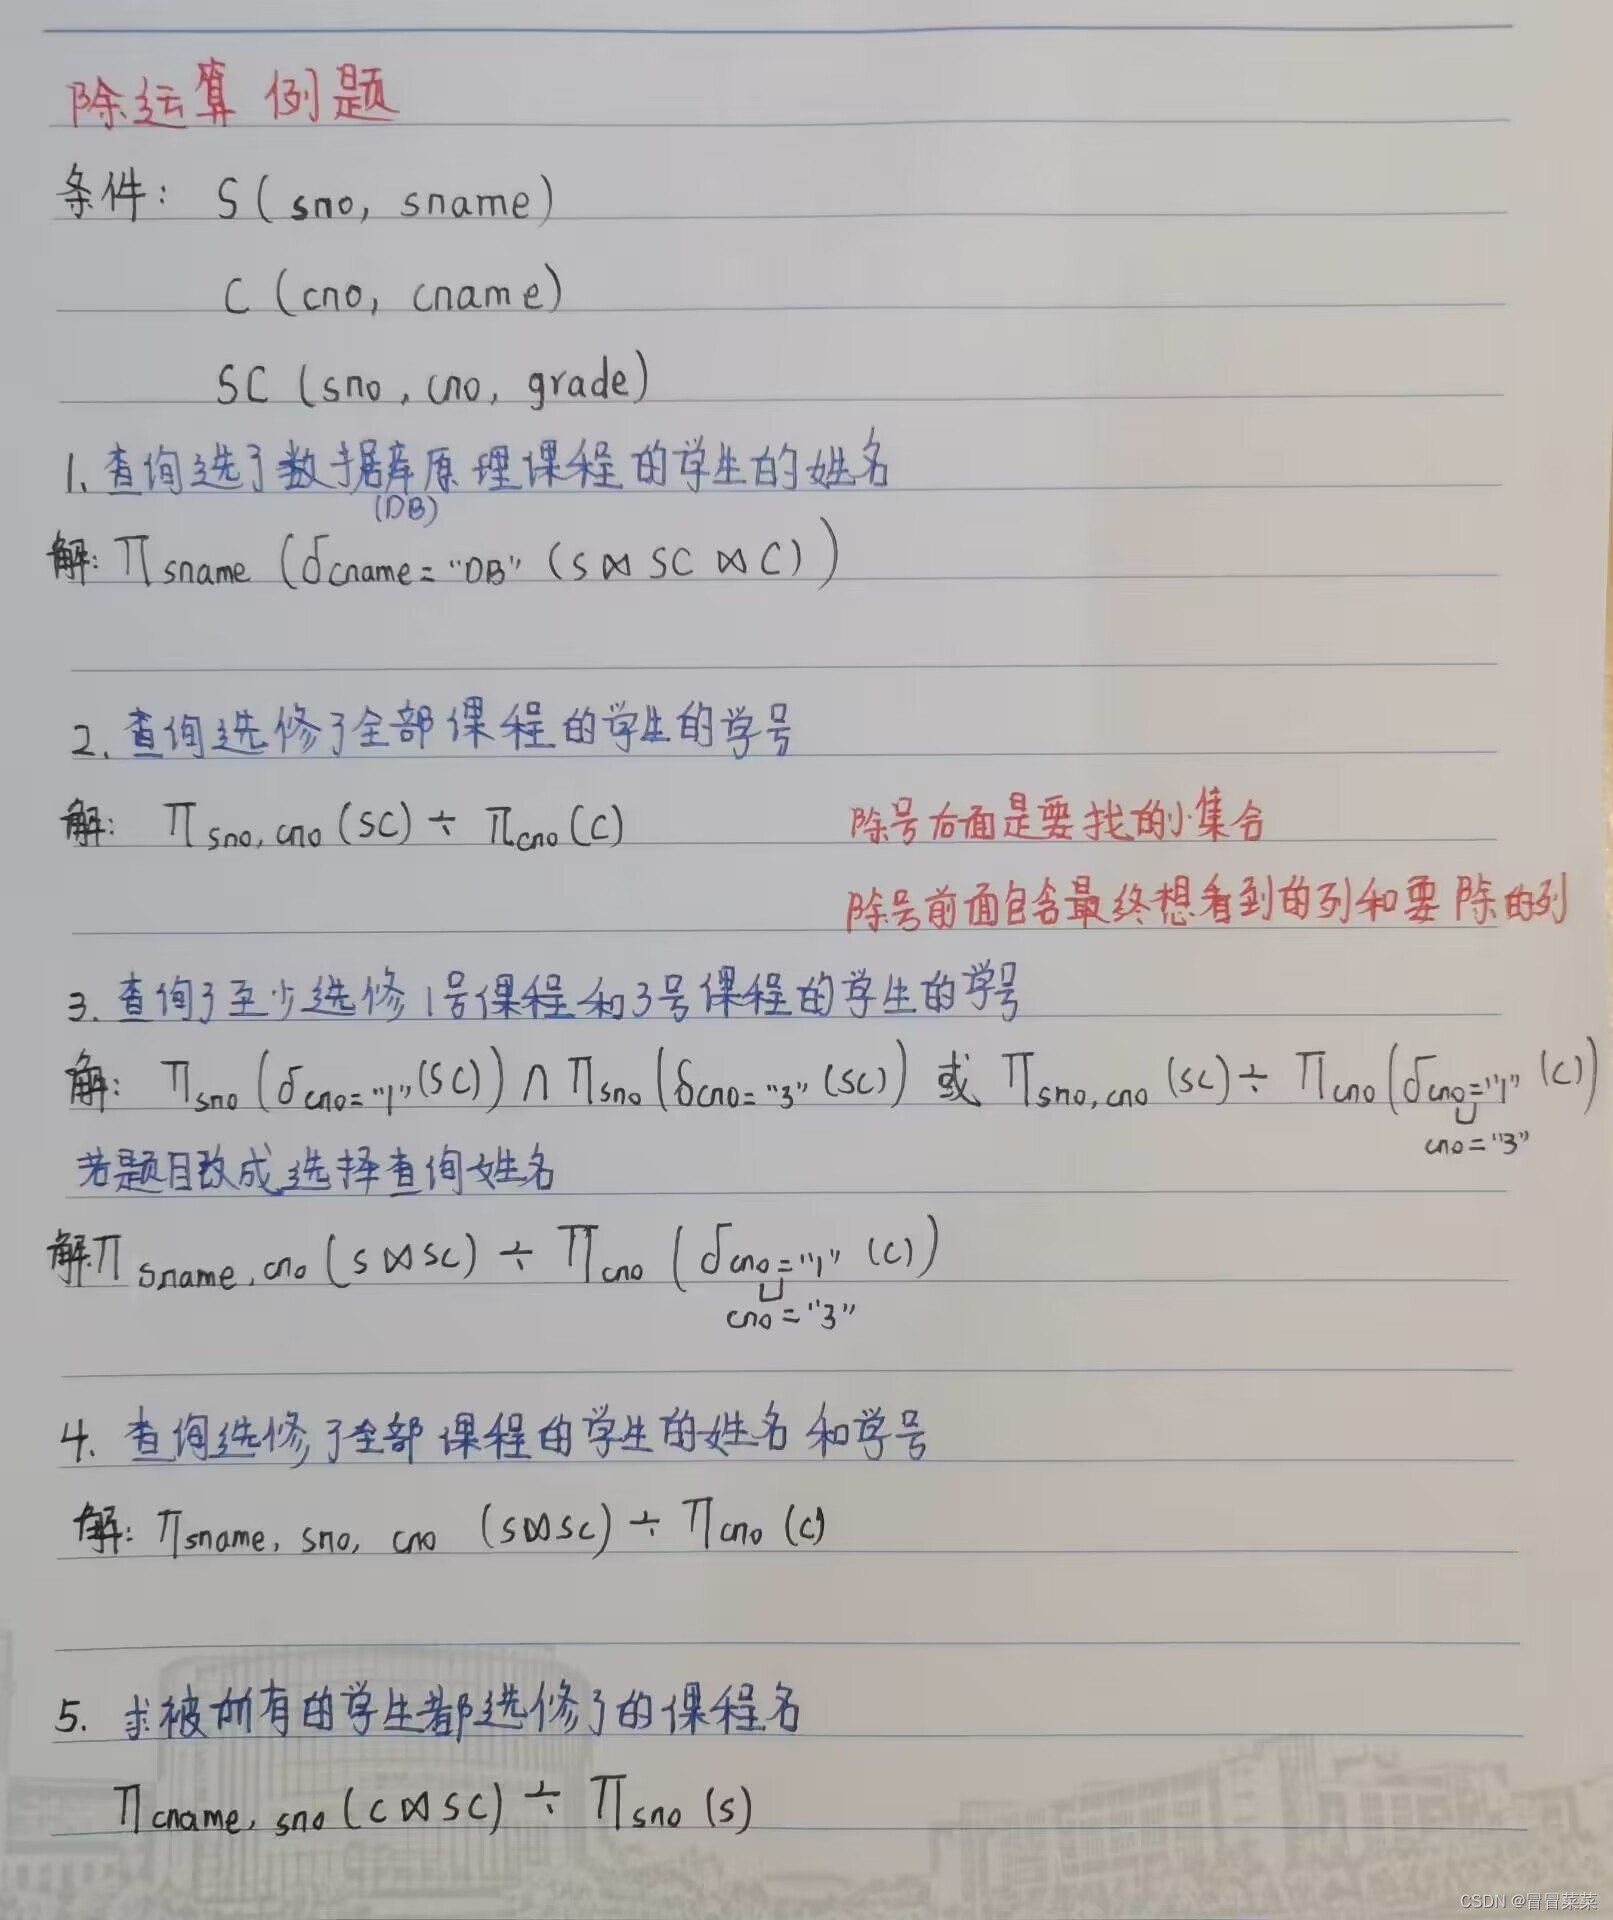 除运算 例题
条件： S ( sno, sname )
C ( cno, cname )
SC ( sno, cno, grade )
1. 查询选了数据库原理课程的学生的姓名
(DB)
解: π sname ( δ cname = "DB" ( S ⋈ SC ⋈ C ) )
2. 查询选修了全部课程的学生的学号
解: π sno, cno (SC) ÷ π cno (C) 除号右面是要找的小集合
除号前面包含最终想看到的列和要除的列
3. 查询了至少选修1号课程和3号课程的学生的学号
解: π sno ( δ cno = "1" (SC) ) ∩ π sno ( δ cno = "3" (SC) ) 或 π sno, cno (SC) ÷ π cno ( δ cno = "1" (C) )
∪
cno = "3"
若题目改成选择查询姓名
解: π sname, cno ( S ⋈ SC ) ÷ π cno ( δ cno = "1" (C) )
∪
cno = "3"
4. 查询选修了全部课程的学生的姓名和学号
解: π sname, sno, cno ( S ⋈ SC ) ÷ π cno (C)
5. 求被所有的学生都选修了的课程名
π cname, sno ( C ⋈ SC ) ÷ π sno (S)
CSDN @冒冒菜菜